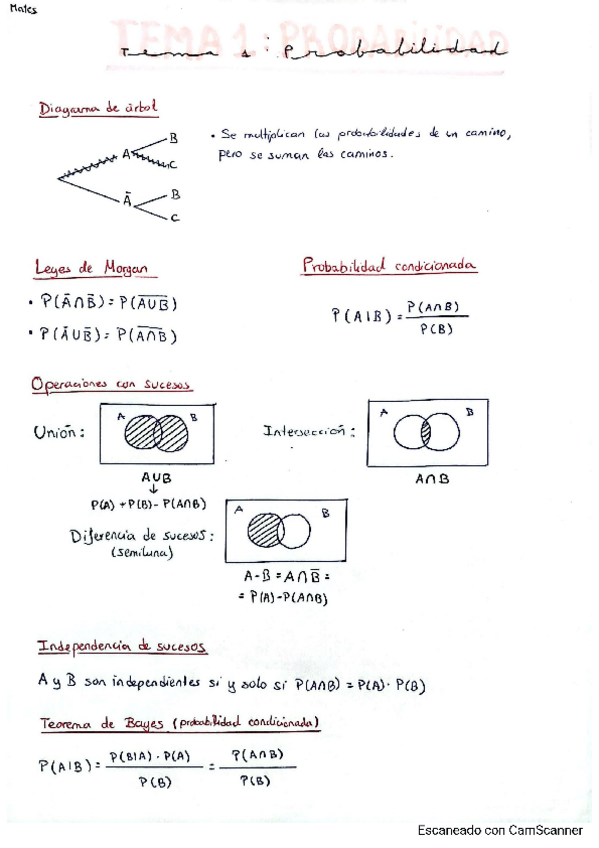 Mates
TEMA 1: PROBABILIDAD
Tema 1: Probabilidad
Diagrama de árbol
B
A
C
• Se multiplican las probabilidades de un camino,
pero se suman los caminos.
B
Ā
C
Leyes de Morgan
• P(Ā∩B̅) = P(A̅U̅B̅)
• P(ĀUB̅) = P(A̅∩̅B̅)
Probabilidad condicionada
P(A|B) = P(A∩B) / P(B)
Operaciones con sucesos
Unión:
A B
AUB
↓
P(A) + P(B) - P(A∩B)
Intersección:
A B
A∩B
Diferencia de sucesos:
(semiluna)
A B
A-B = A∩B̅ =
= P(A)-P(A∩B)
Independencia de sucesos
A y B son independientes si y solo si P(A∩B) = P(A)· P(B)
Teorema de Bayes (probabilidad condicionada)
P(A|B) = P(B|A) · P(A) / P(B) = P(A∩B) / P(B)
Escaneado con CamScanner